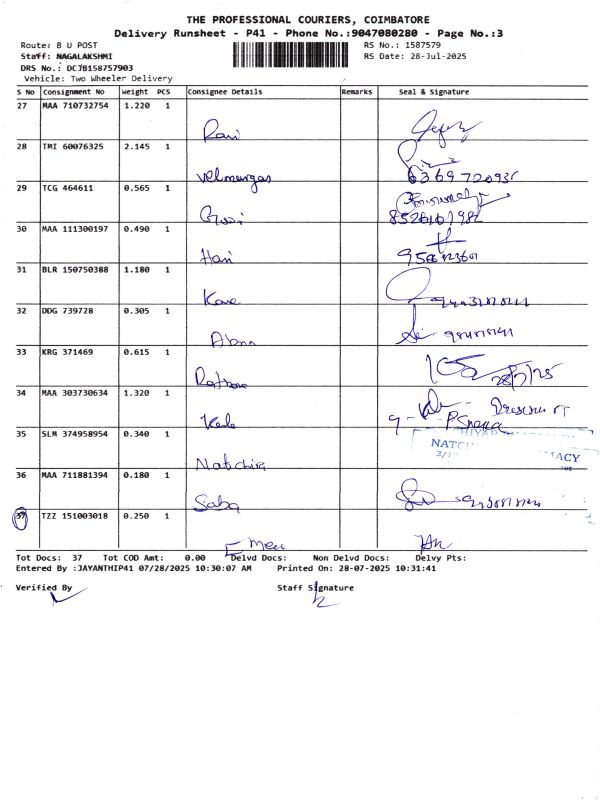 THE PROFESSIONAL COURIERS, COIMBATORE
Delivery Runsheet - P41 - Phone No.:9047080280 - Page No.:3
Route: B U POST RS No.: 1587579
Staff: NAGALAKSHMI RS Date: 28-Jul-2025
DRS No.: DCJB158757903
Vehicle: Two Wheeler Delivery
S No Consignment No Weight PCS Consignee Details Remarks Seal & Signature
27 MAA 710732754 1.220 1
Ravi
28 TMI 60076325 2.145 1
Velmurugan 6369720935
29 TCG 464611 0.565 1
8526161982
30 MAA 111300197 0.490 1
Hari
31 BLR 150750388 1.180 1
32 DDG 739728 0.305 1
33 KRG 371469 0.615 1
28/7/25
34 MAA 303730634 1.320 1
35 SLM 374958954 0.340 1
NATCH
ACY
Natchiya
36 MAA 711881394 0.180 1
Saba
37 TZZ 151003018 0.250 1
Tot Docs: 37 Tot COD Amt: 0.00 Delvd Docs: Non Delvd Docs: Delvy Pts:
Entered By :JAYANTHIP41 07/28/2025 10:30:07 AM Printed On: 28-07-2025 10:31:41
Verified By Staff Signature